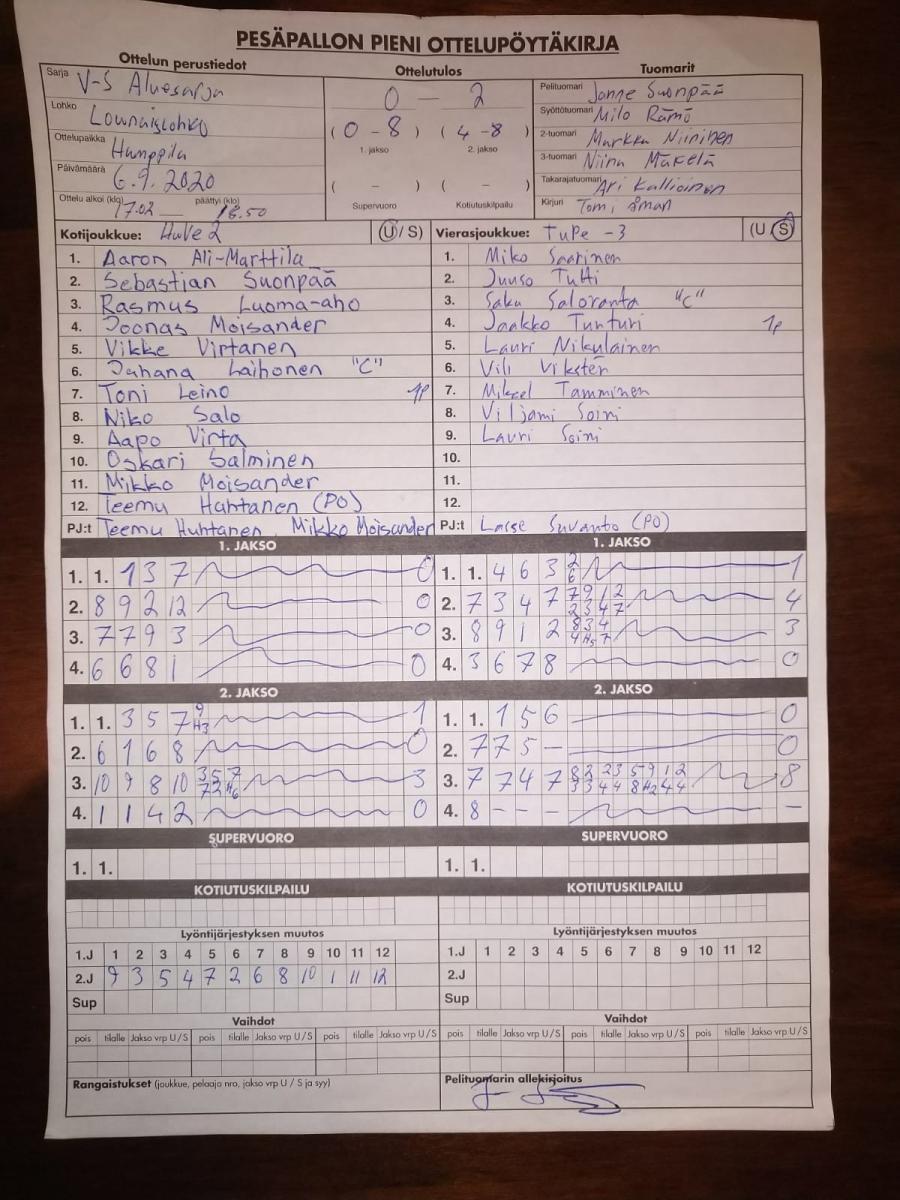 PESÄPALLON PIENI OTTELUPÖYTÄKIRJA
Ottelun perustiedot
Sarja V-S Aluesarja
Lohko Lounaislohko
Ottelupaikka Humppila
Päivämäärä 6.9.2020
Ottelu alkoi (klo) 17.02 päättyi (klo) 18.50
Ottelutulos
0 - 2
(0 - 8) (4 - 8)
1. jakso 2. jakso
( - ) ( - )
Supervuoro Kotiutuskilpailu
Tuomarit
Pelituomari Janne Suonpää
Syöttötuomari Milo Rämö
2-tuomari Markku Niininen
3-tuomari Niina Mäkelä
Takarajatuomari Ari Kallioinen
Kirjuri Tomi Åman
Kotijoukkue: HuVe 2 (U / S)
1. Aaron Ali-Marttila
2. Sebastian Suonpää
3. Rasmus Luoma-aho
4. Joonas Moisander
5. Vikke Virtanen
6. Juhana Laihonen "C"
7. Toni Leino 1p
8. Niko Salo
9. Aapo Virta
10. Oskari Salminen
11. Mikko Moisander
12. Teemu Huhtanen (PO)
PJ:t Teemu Huhtanen Mikko Moisander
Vierasjoukkue: TuPe -3 (U / S)
1. Miko Saarinen
2. Juuso Tutti
3. Saku Saloranta "C"
4. Jaakko Tunturi 1p
5. Lauri Nikulainen
6. Vili Vikstén
7. Mikael Tamminen
8. Viljami Soini
9. Lauri Soini
10.
11.
12.
PJ:t Lasse Suvanto (PO)
1. JAKSO
1. 1. 1 3 7 0
2. 8 9 2 12 0
3. 7 7 9 3 0
4. 6 6 8 1 0
1. JAKSO
1. 1. 4 6 3 2 6 1
2. 7 3 4 7 7 9 1 2 2 3 4 7 4
3. 8 9 1 2 8 3 4 4 H5 7 3
4. 3 6 7 8 0
2. JAKSO
1. 1. 3 5 7 9 H3 1
2. 6 1 6 8 0
3. 10 9 8 10 3 5 7 7 2 H6 3
4. 1 1 4 2 0
2. JAKSO
1. 1. 1 5 6 0
2. 7 7 5 - 0
3. 7 7 4 7 8 2 2 3 5 9 1 2 3 3 4 4 8 H2 4 4 8
4. 8 - - - -
SUPERVUORO
1. 1.
SUPERVUORO
1. 1.
KOTIUTUSKILPAILU
KOTIUTUSKILPAILU
Lyöntijärjestyksen muutos
1.J 1 2 3 4 5 6 7 8 9 10 11 12
2.J 9 3 5 4 7 2 6 8 10 1 11 12
Sup
Lyöntijärjestyksen muutos
1.J 1 2 3 4 5 6 7 8 9 10 11 12
2.J
Sup
Vaihdot
pois tilalle Jakso vrp U/S pois tilalle Jakso vrp U/S pois tilalle Jakso vrp U/S
Vaihdot
pois tilalle Jakso vrp U/S pois tilalle Jakso vrp U/S pois tilalle Jakso vrp U/S
Rangaistukset (joukkue, pelaaja nro, jakso vrp U / S ja syy)
Pelituomarin allekirjoitus